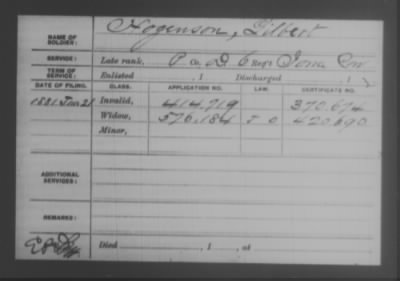 NAME OF SOLDIER: Hogenson, Gilbert
SERVICE: Late rank, P Co. D 6 Reg't Iowa Cav
TERM OF SERVICE: Enlisted , 1 Discharged , 1
DATE OF FILING. CLASS. APPLICATION NO. LAW. CERTIFICATE NO.
1881 Jan 21 Invalid, 414.719 370.674
Widow, 576.184 420.690
Minor,
ADDITIONAL SERVICES:
REMARKS:
Died , 1 , at